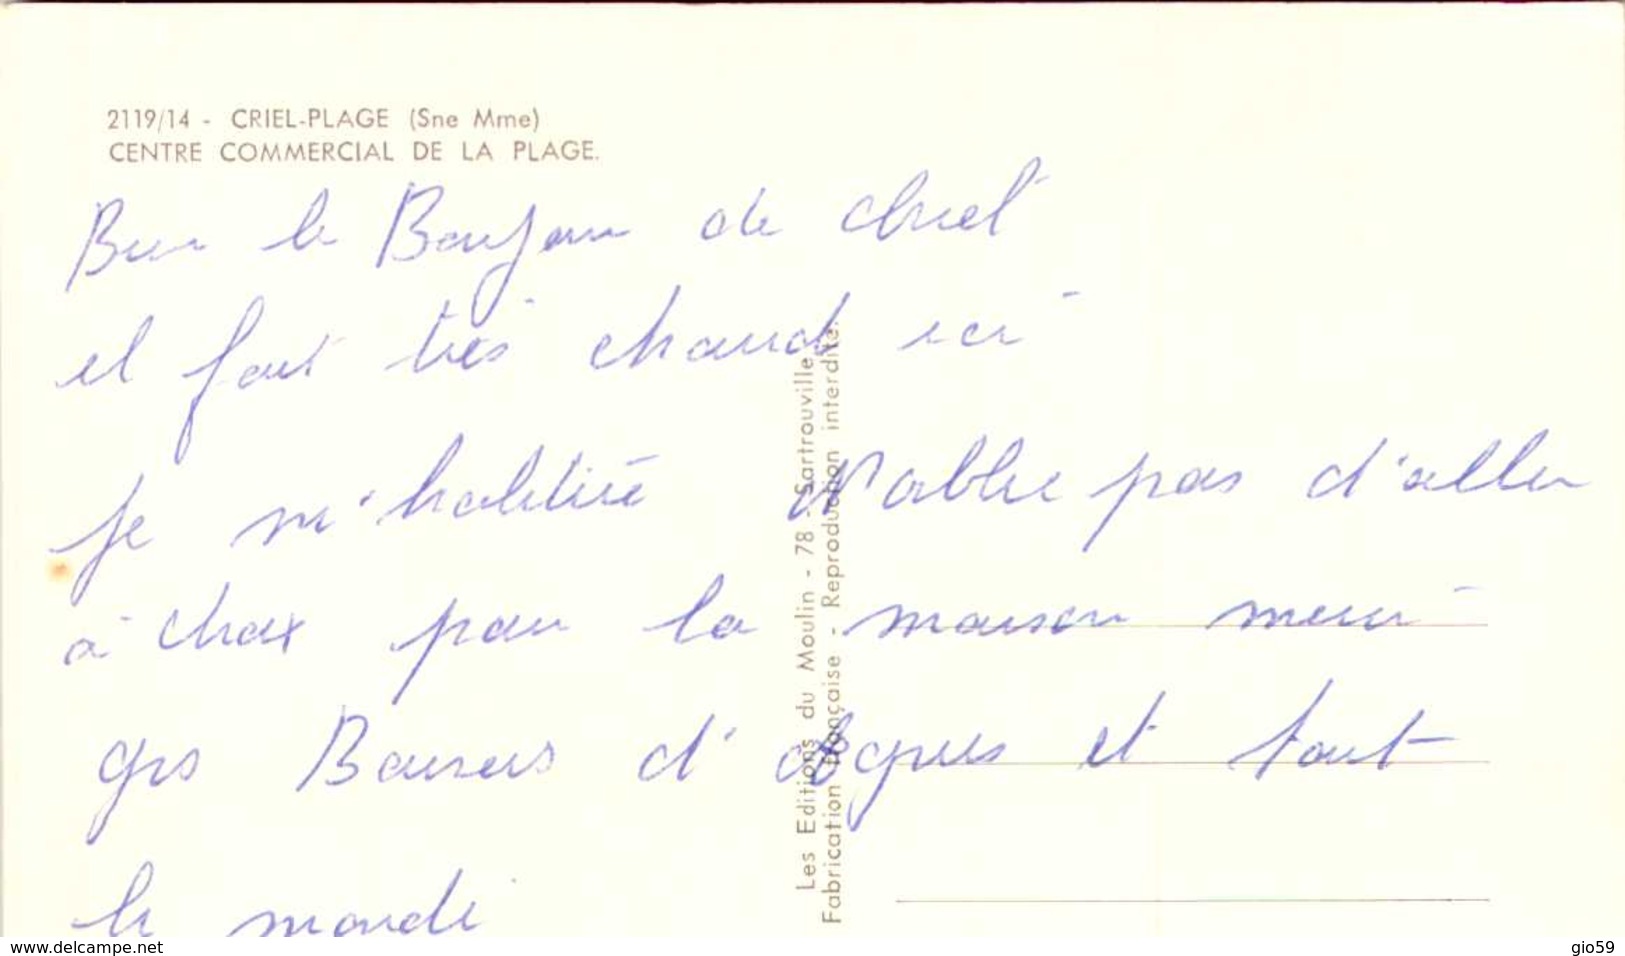 2119/14 - CRIEL-PLAGE (Sne Mme)
CENTRE COMMERCIAL DE LA PLAGE.
le Bonjour de Criel
il fait très chaud ici
je m'habitue N'oublie pas d'aller
à pour la maison merci
grs Baisers d' et tout
le monde
Les Editions du Moulin - 78 - Sartrouville
Fabrication française - Reproduction interdite.
www.delcampe.net
gio59